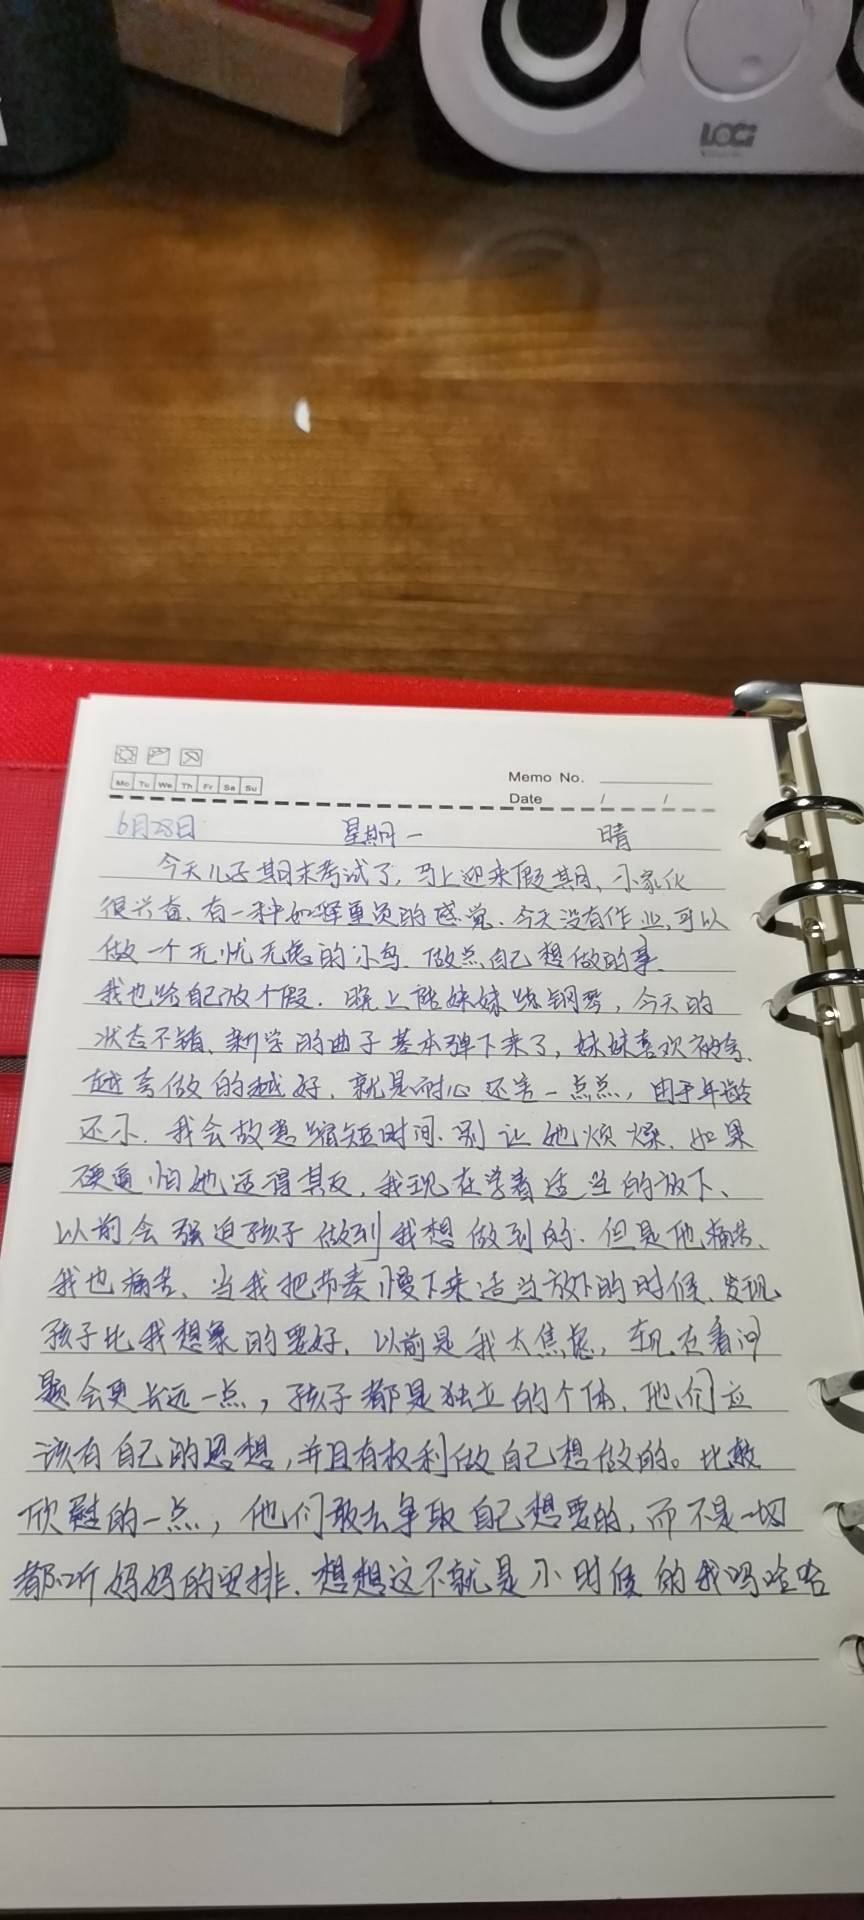 LOGi
Mo Tu We Th Fr Sa Su
Memo No.
Date / /
6月28日 星期一 晴
今天儿子期末考试了,马上迎来假期、小家伙
很兴奋、有一种如释重负的感觉、今天没有作业,可以
做一个无忧无虑的小鸟、做点自己想做的事、
我也给自己放个假、晚上陪妹妹练钢琴,今天的
状态不错、新学的曲子基本弹下来了,妹妹喜欢被夸、
越夸做的越好、就是耐心还害一点点,由于年龄
还小、我会故意缩短时间、别让她烦燥、如果
硬逼怕她适得其反、我现在学着适当的放下、
以前会强迫孩子做到我想做到的、但是他痛苦、
我也痛苦、当我把节奏慢下来适当放下的时候、发现
孩子比我想象的要好、以前是我太焦虑,现在看问
题会更长远一点,孩子都是独立的个体、他们应
该有自己的思想,并且有权利做自己想做的。比较
欣慰的一点,他们敢去争取自己想要的,而不是一切
都听妈妈的安排、想想这不就是小时候的我吗哈哈